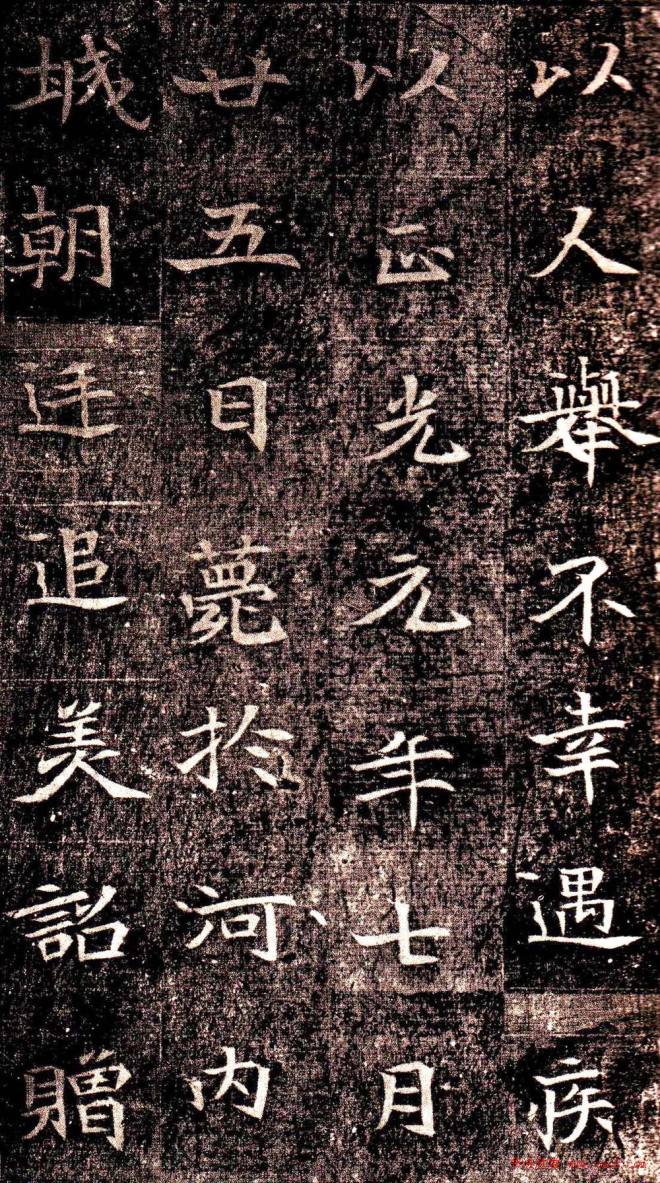 以人舉不幸遇疾
以正光元年七月
廿五日薨於河内
城朝廷追美詔贈